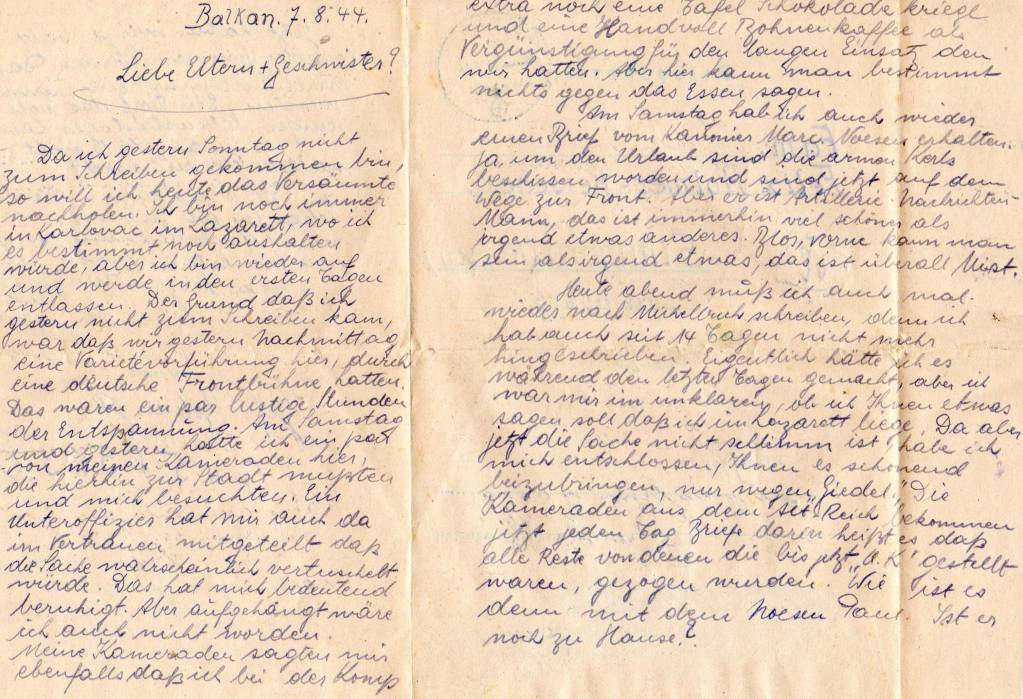 Balkan. 7.8.44.
Liebe Eltern + Geschwister?
Da ich gestern Sonntag nicht
zum Schreiben gekommen bin,
so will ich heute das Versäumte
nachholen. Ich bin noch immer
in Karlovac im Lazarett, wo ich
es bestimmt noch aushalten
würde, aber ich bin wieder auf
und werde in den ersten Tagen
entlassen. Der Grund daß ich
gestern nicht zum Schreiben kam,
war daß wir gestern Nachmittag
eine Varietévorführung hier, durch
eine deutsche Frontbühne hatten.
Das waren ein par lustige Stunden
der Entspannung. Am Samstag
und gestern, hatte ich ein par
von meinen Kameraden hier,
die hierhin zur Stadt mußten
und mich besuchten. Ein
Unteroffizier hat mir auch da
im Vertrauen mitgeteilt daß
die Sache wahrscheinlich vertuschelt
würde. Das hat mich bedeutend
beruhigt. Aber aufgehängt wäre
ich auch nicht worden.
Meine Kameraden sagten mir
ebenfalls daß ich bei der Komp
extra noch eine Tafel Schokolade kriege
und eine Handvoll Bohnenkaffee als
Vergünstigung für den langen Einsatz den
wir hatten. Aber hier kann man bestimmt
nichts gegen das Essen sagen.
Am Samstag hab ich auch wieder
einen Brief vom Kanonier Marc. Noesen erhalten.
Ja, um den Urlaub sind die armen Kerls
beschissen worden und sind jetzt auf dem
Wege zur Front. Aber er ist Artillerie-Nachrichten-
Mann, das ist immerhin viel schöner als
irgend etwas anderes. Blos, vorne kann man
sein als irgend etwas, das ist überall Mist.
Heute abend muß ich auch mal
wieder nach schreiben, denn ich
hab auch seit 14 Tagen nicht mehr
hingeschrieben. Eigentlich hätte ich es
während den letzten Tagen gemacht, aber ich
war mir im unklaren, ob ich Ihnen etwas
sagen soll daß ich im Lazarett liege. Da aber
jetzt die Sache nicht schlimm ist habe ich
mich entschlossen, Ihnen es schonend
beizubringen, nur wegen „Giedel." Die
Kameraden aus dem Alt-Reich bekommen
jetzt jeden Tag Briefe darin heißt es daß
alle Reste von denen die bis jetzt „U.K" gestellt
waren, gezogen wurden. Wie ist es
denn mit dem Noesen Paul. Ist er
noch zu Hause?